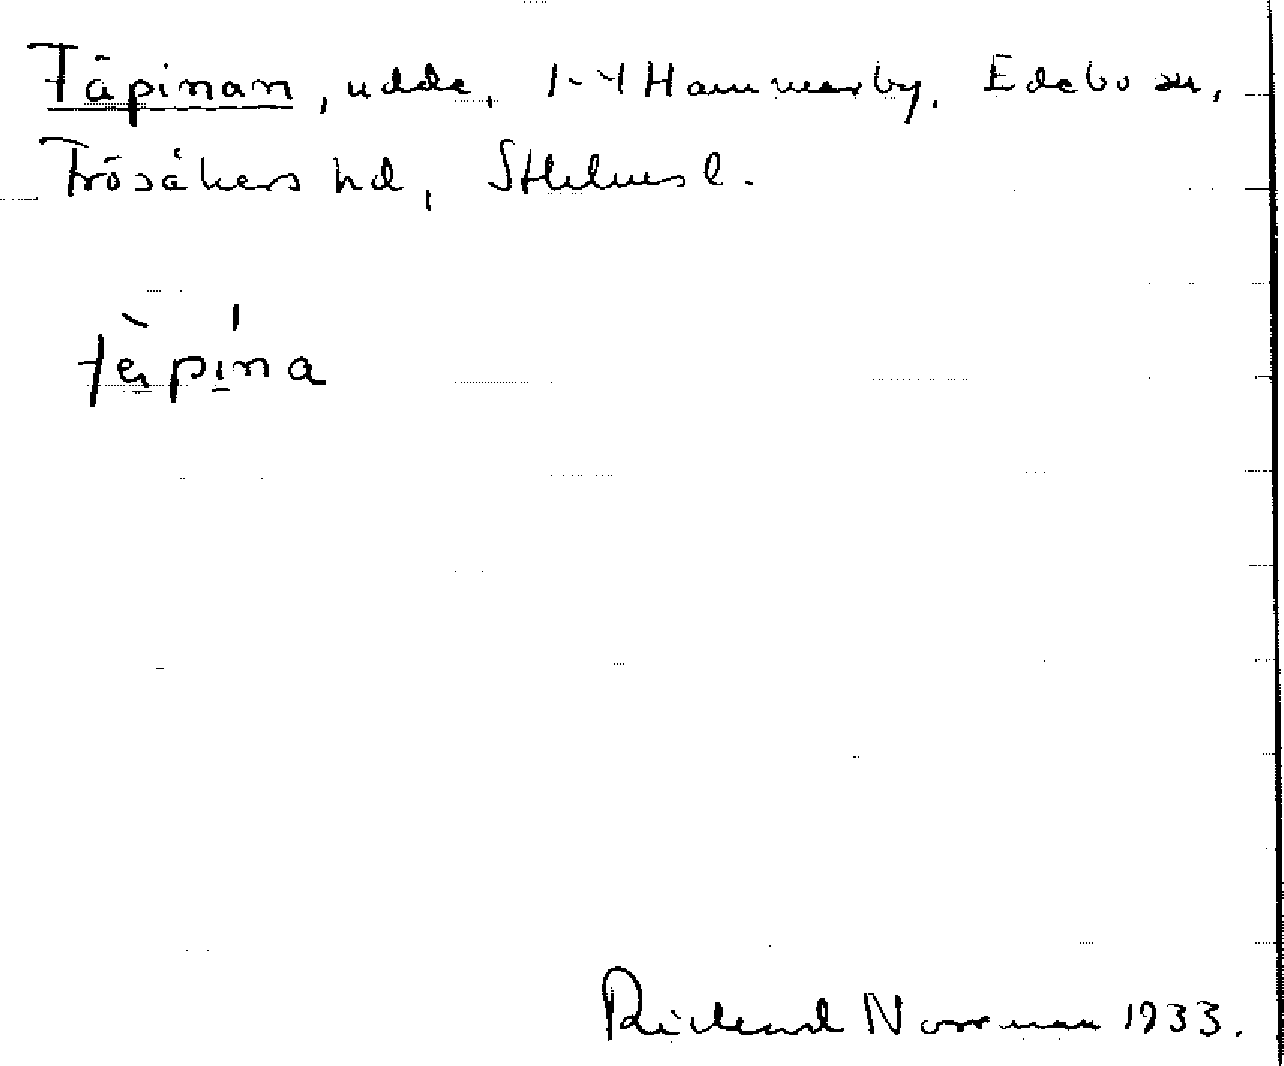 Täpinan, udde, 1-4 Hammarby, Edebo sn,
Frösåkers hd, Sthlms l.
Richard Norrman 1933.